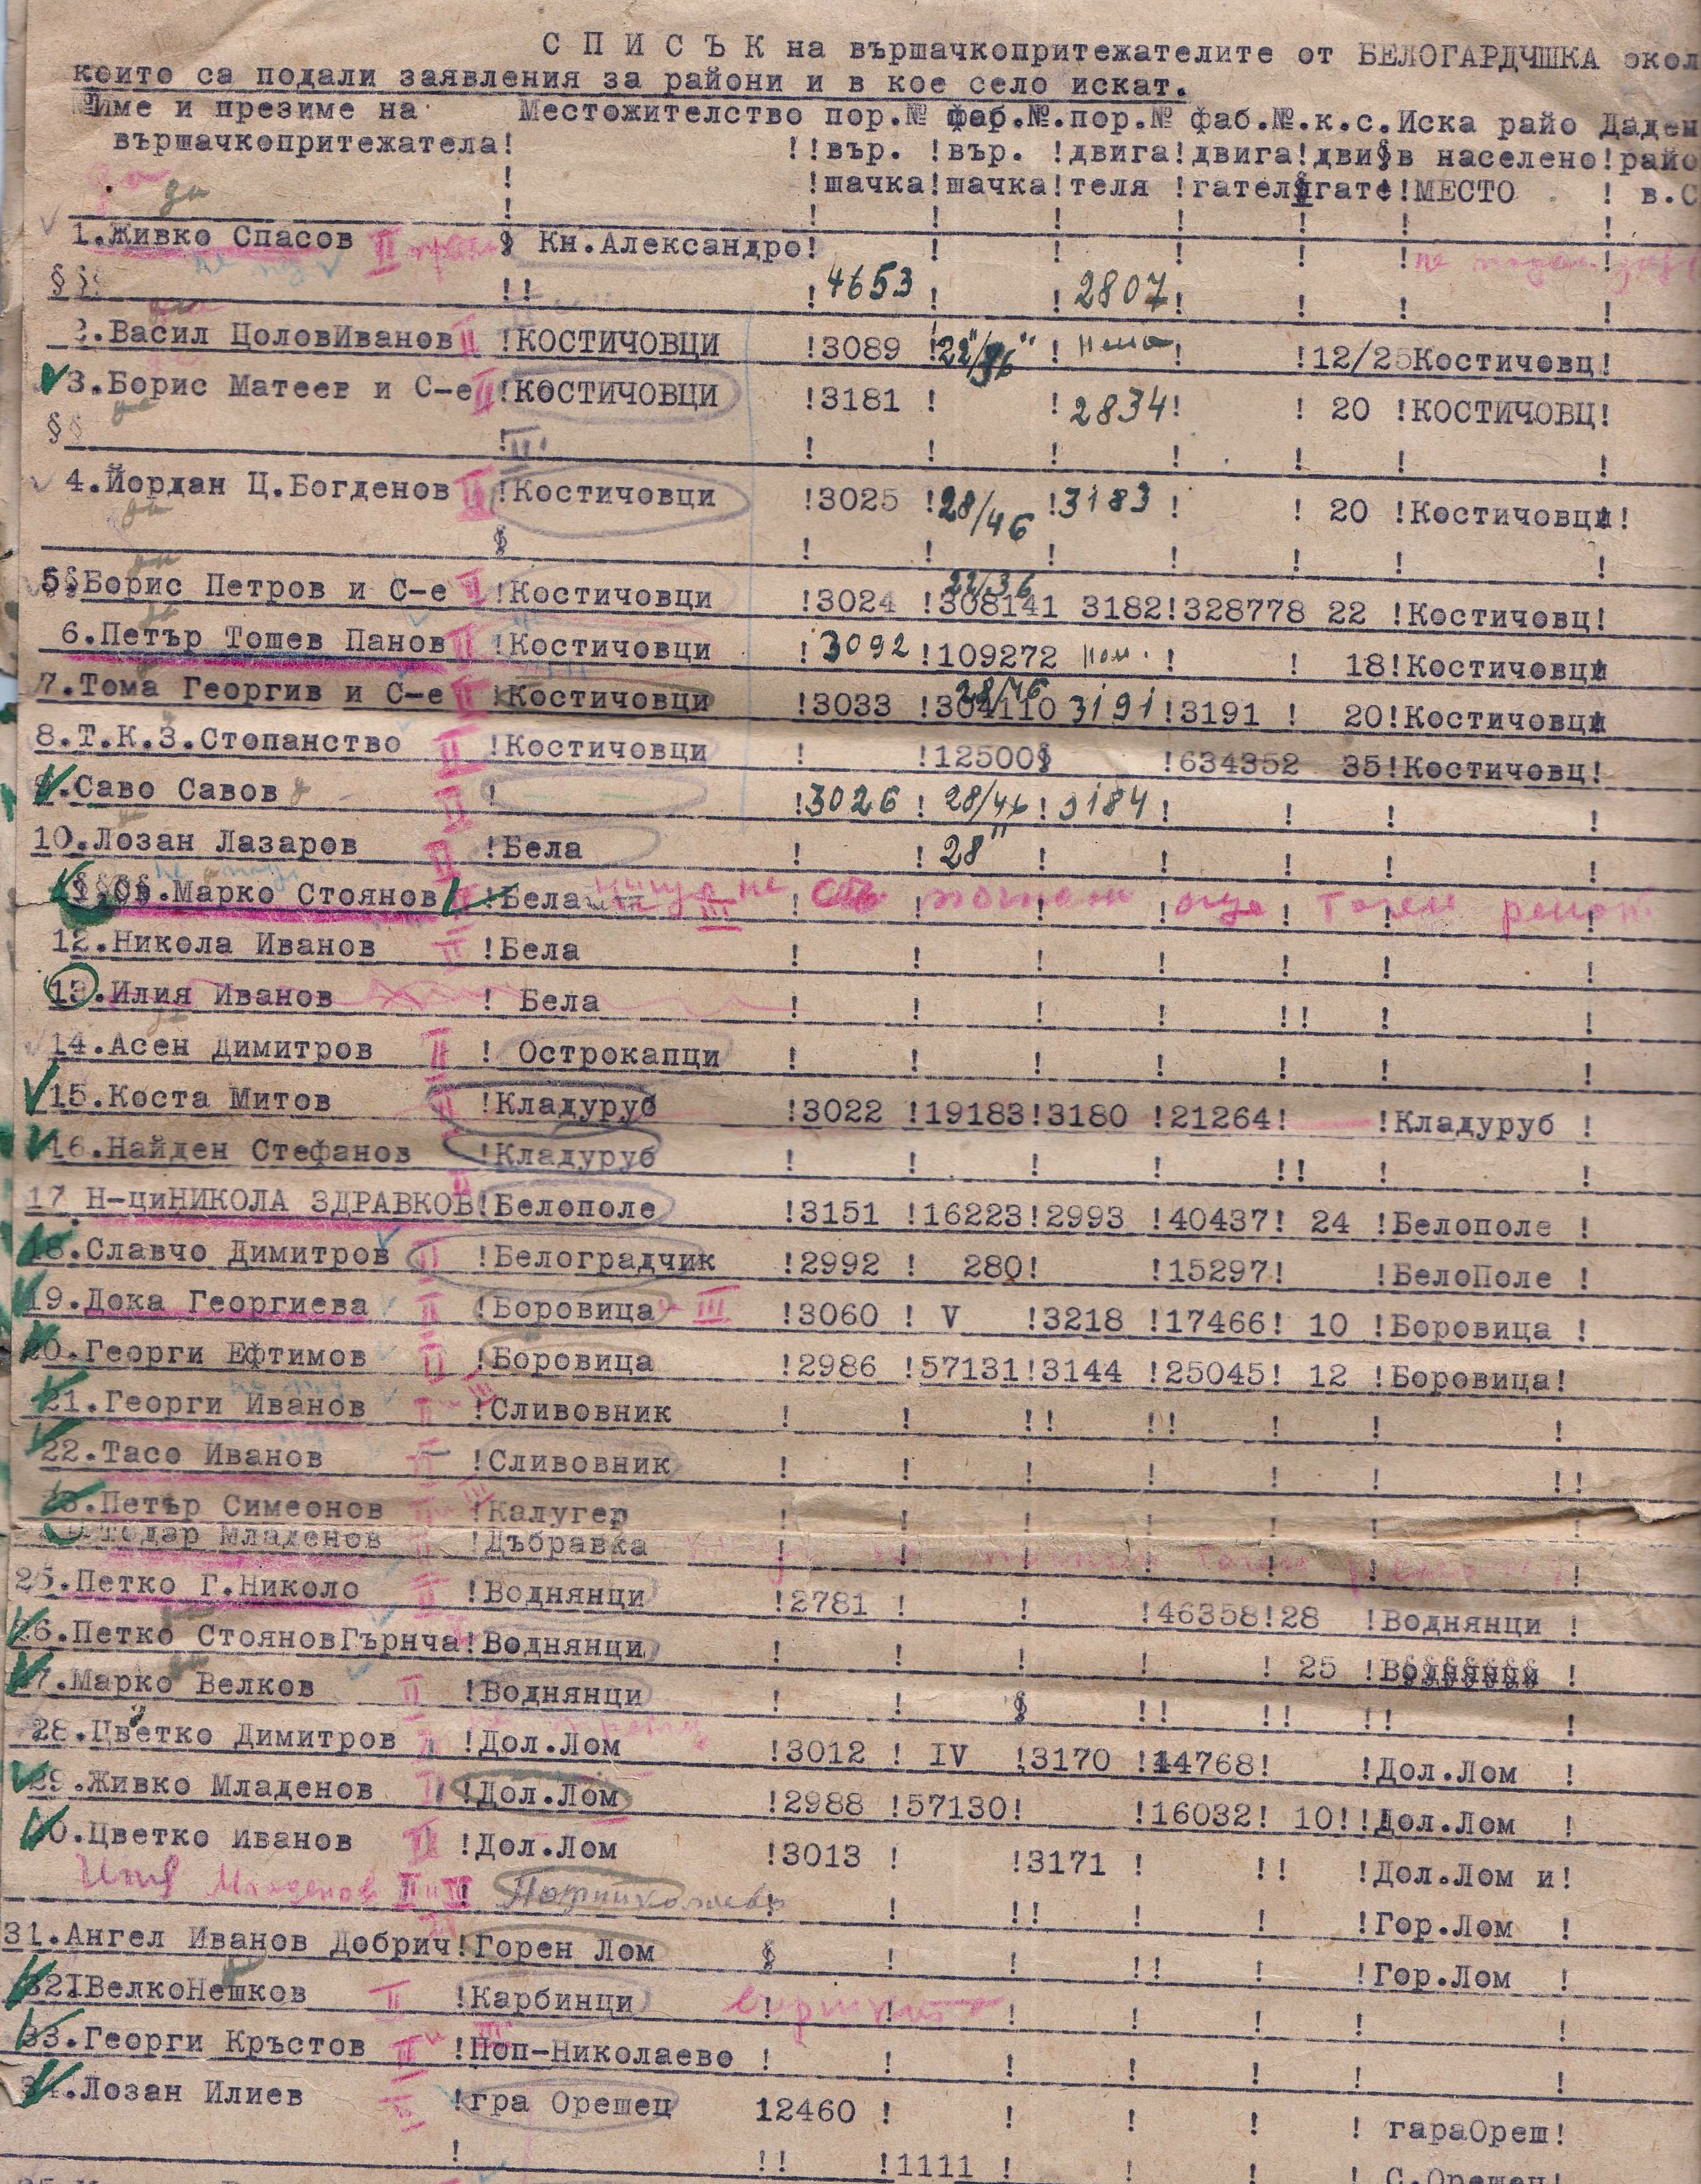 С П И С Ъ К на вършачкопритежателите от БЕЛОГАРДЧШКА окол
които са подали заявления за райони и в кое село искат.
№Име и презиме на Местожителство пор.№ фаб.№.пор.№ фаб.№.к.с.Иска райо Даден
вършачкопритежателa! !!вър. !вър. !двига!двига!дви§в населено!райо
! !шачка!шачка!теля !гателя!гате!МЕСТО ! в.С
да
1.Живко Спасов II § Кн.Александро! ! ! ! ! ! !
§§§ !! ! 4653 ! ! 2807! ! ! !
2.Васил ЦоловИванов II !КОСТИЧОВЦИ !3089 !22"/36" ! ! !12/25Костичовц!
3.Борис Матеев и С-е II !КОСТИЧОВЦИ !3181 ! ! 2834! ! 20 !КОСТИЧОВЦ!
§§ ! ! ! ! ! ! ! !
4.Йордан Ц.Богденов II !Костичовци !3025 !28/46 !3183 ! ! 20 !Костичовци!
§ ! ! ! ! ! ! !
22/36
5§Борис Петров и С-е II !Костичовци !3024 !308141 3182!328778 22 !Костичовц!
6.Петър Тошев Панов II !Костичовци ! 3092 !109272 ! ! 18!Костичовци
28/46
7.Тома Георгив и С-е II !Костичовци !3033 !304110 3191 !3191 ! 20!Костичовци
8.Т.К.З.Стопанство II !Костичовци ! !12500§ !634352 35!Костичовц!
9.Саво Савов II ! !3026 ! 28/46 ! 3184 ! ! ! !
10.Лозан Лазаров II !Бела ! ! 28" ! ! ! ! !
§§§§.Марко Стоянов !Бела III ! ! ! ! ! ! !
12.Никола Иванов II !Бела ! ! ! ! ! ! !
13.Илия Иванов ! Бела ! ! ! ! !! ! !
14.Асен Димитров II ! Острокапци ! ! ! ! ! ! !
15.Коста Митов II !Кладуруб !3022 !19183!3180 !21264! !Кладуруб !
16.Найден Стефанов !Кладуруб ! ! ! ! !! ! !
17 Н-циНИКОЛА ЗДРАВКОВ!Белополе !3151 !16223!2993 !40437! 24 !Белополе !
18.Славчо Димитров II !Белоградчик !2992 ! 280! !15297! !БелоПоле !
19.Дока Георгиева II !Боровица III !3060 ! V !3218 !17466! 10 !Боровица !
20.Георги Ефтимов II !Боровица !2986 !57131!3144 !25045! 12 !Боровица!
21.Георги Иванов II !Сливовник ! ! !! !! ! ! !
22.Тасо Иванов II !Сливовник ! ! ! ! ! ! !!
23.Петър Симеонов !Калугер ! ! ! ! ! ! !
Тодар Младенов !Дъбравка ! ! ! ! ! ! !
25.Петко Г.Николо II !Воднянци !2781 ! ! !46358!28 !Воднянци !
26.Петко СтояновГърнча!Воднянци ! ! ! ! ! 25 !Воднянци !
27.Марко Велков II !Воднянци ! ! § !! !! !! !
28.Цветко Димитров II !Дол.Лом !3012 ! IV !3170 !14768! !Дол.Лом !
29.Живко Младенов II !Дол.Лом !2988 !57130! !16032! 10!!Дол.Лом !
30.Цветко Иванов II !Дол.Лом !3013 ! !3171 ! !! !Дол.Лом и!
Младенов II и III ! ! ! !! ! ! !Гор.Лом !
31.Ангел Иванов Добрич!Горен Лом § ! ! !! ! !Гор.Лом !
32IВелкоНешков II !Карбинци ! ! ! ! ! ! !
33.Георги Кръстов II и III !Поп-Николаево ! ! ! ! ! ! !
34.Лозан Илиев II !гра Орешец 12460 ! ! ! ! ! гараОреш!
! !! !1111 ! ! ! ! С.Орешец!